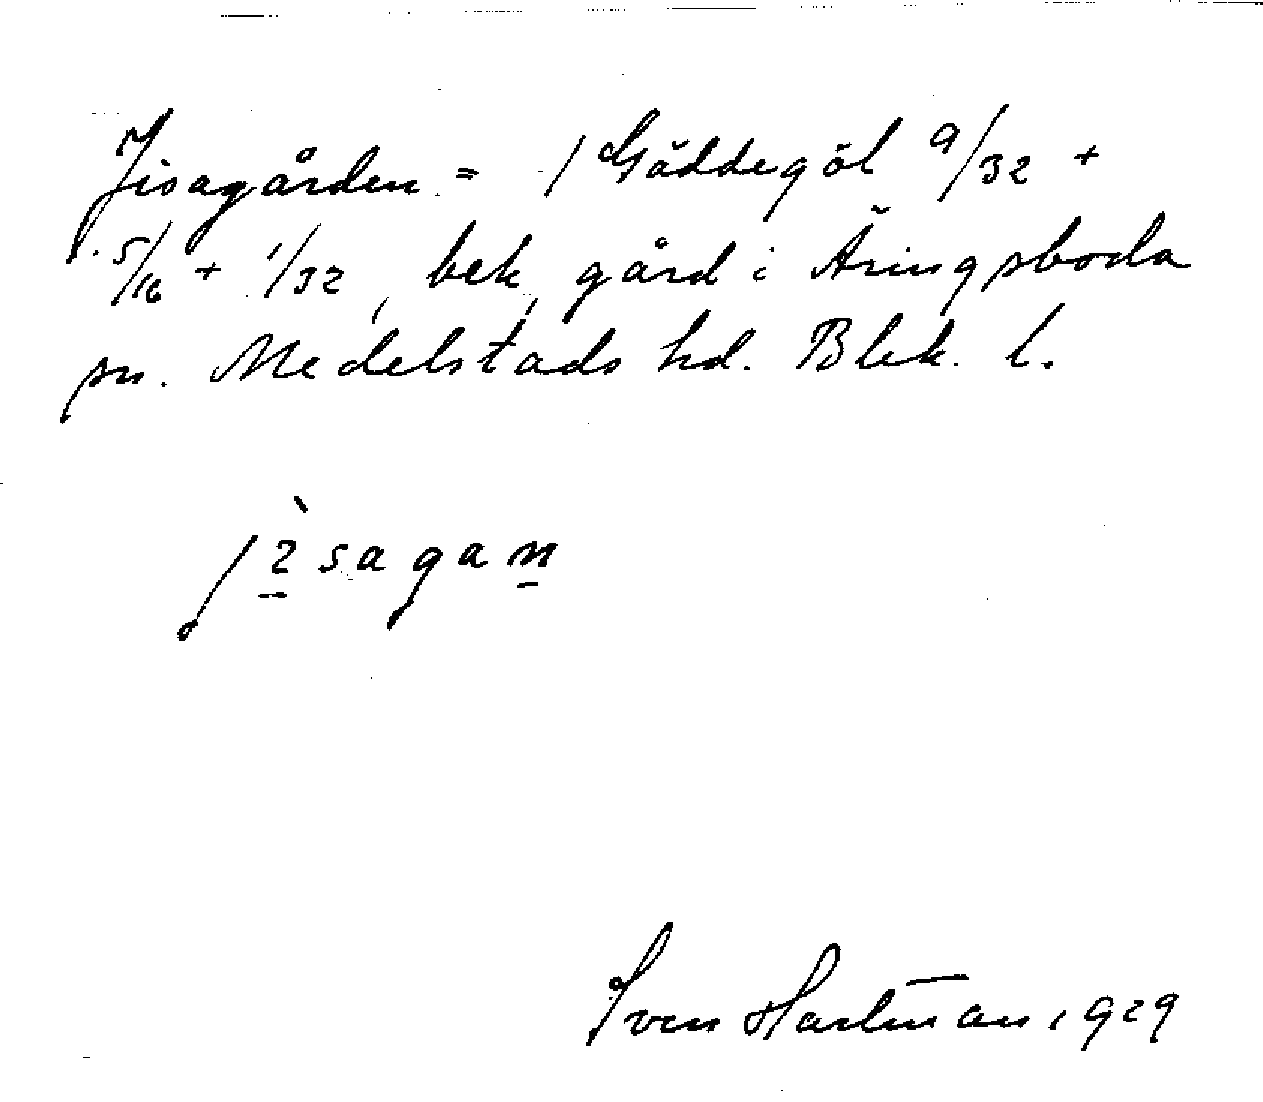 Jisagården = 1 Gäddegöl 9/32 +
5/16 + 1/32, bek, gård i Äringsboda
sn. Medelstads hd. Blek. l.
j2̀sagan
Sven Hartm̄an 1929